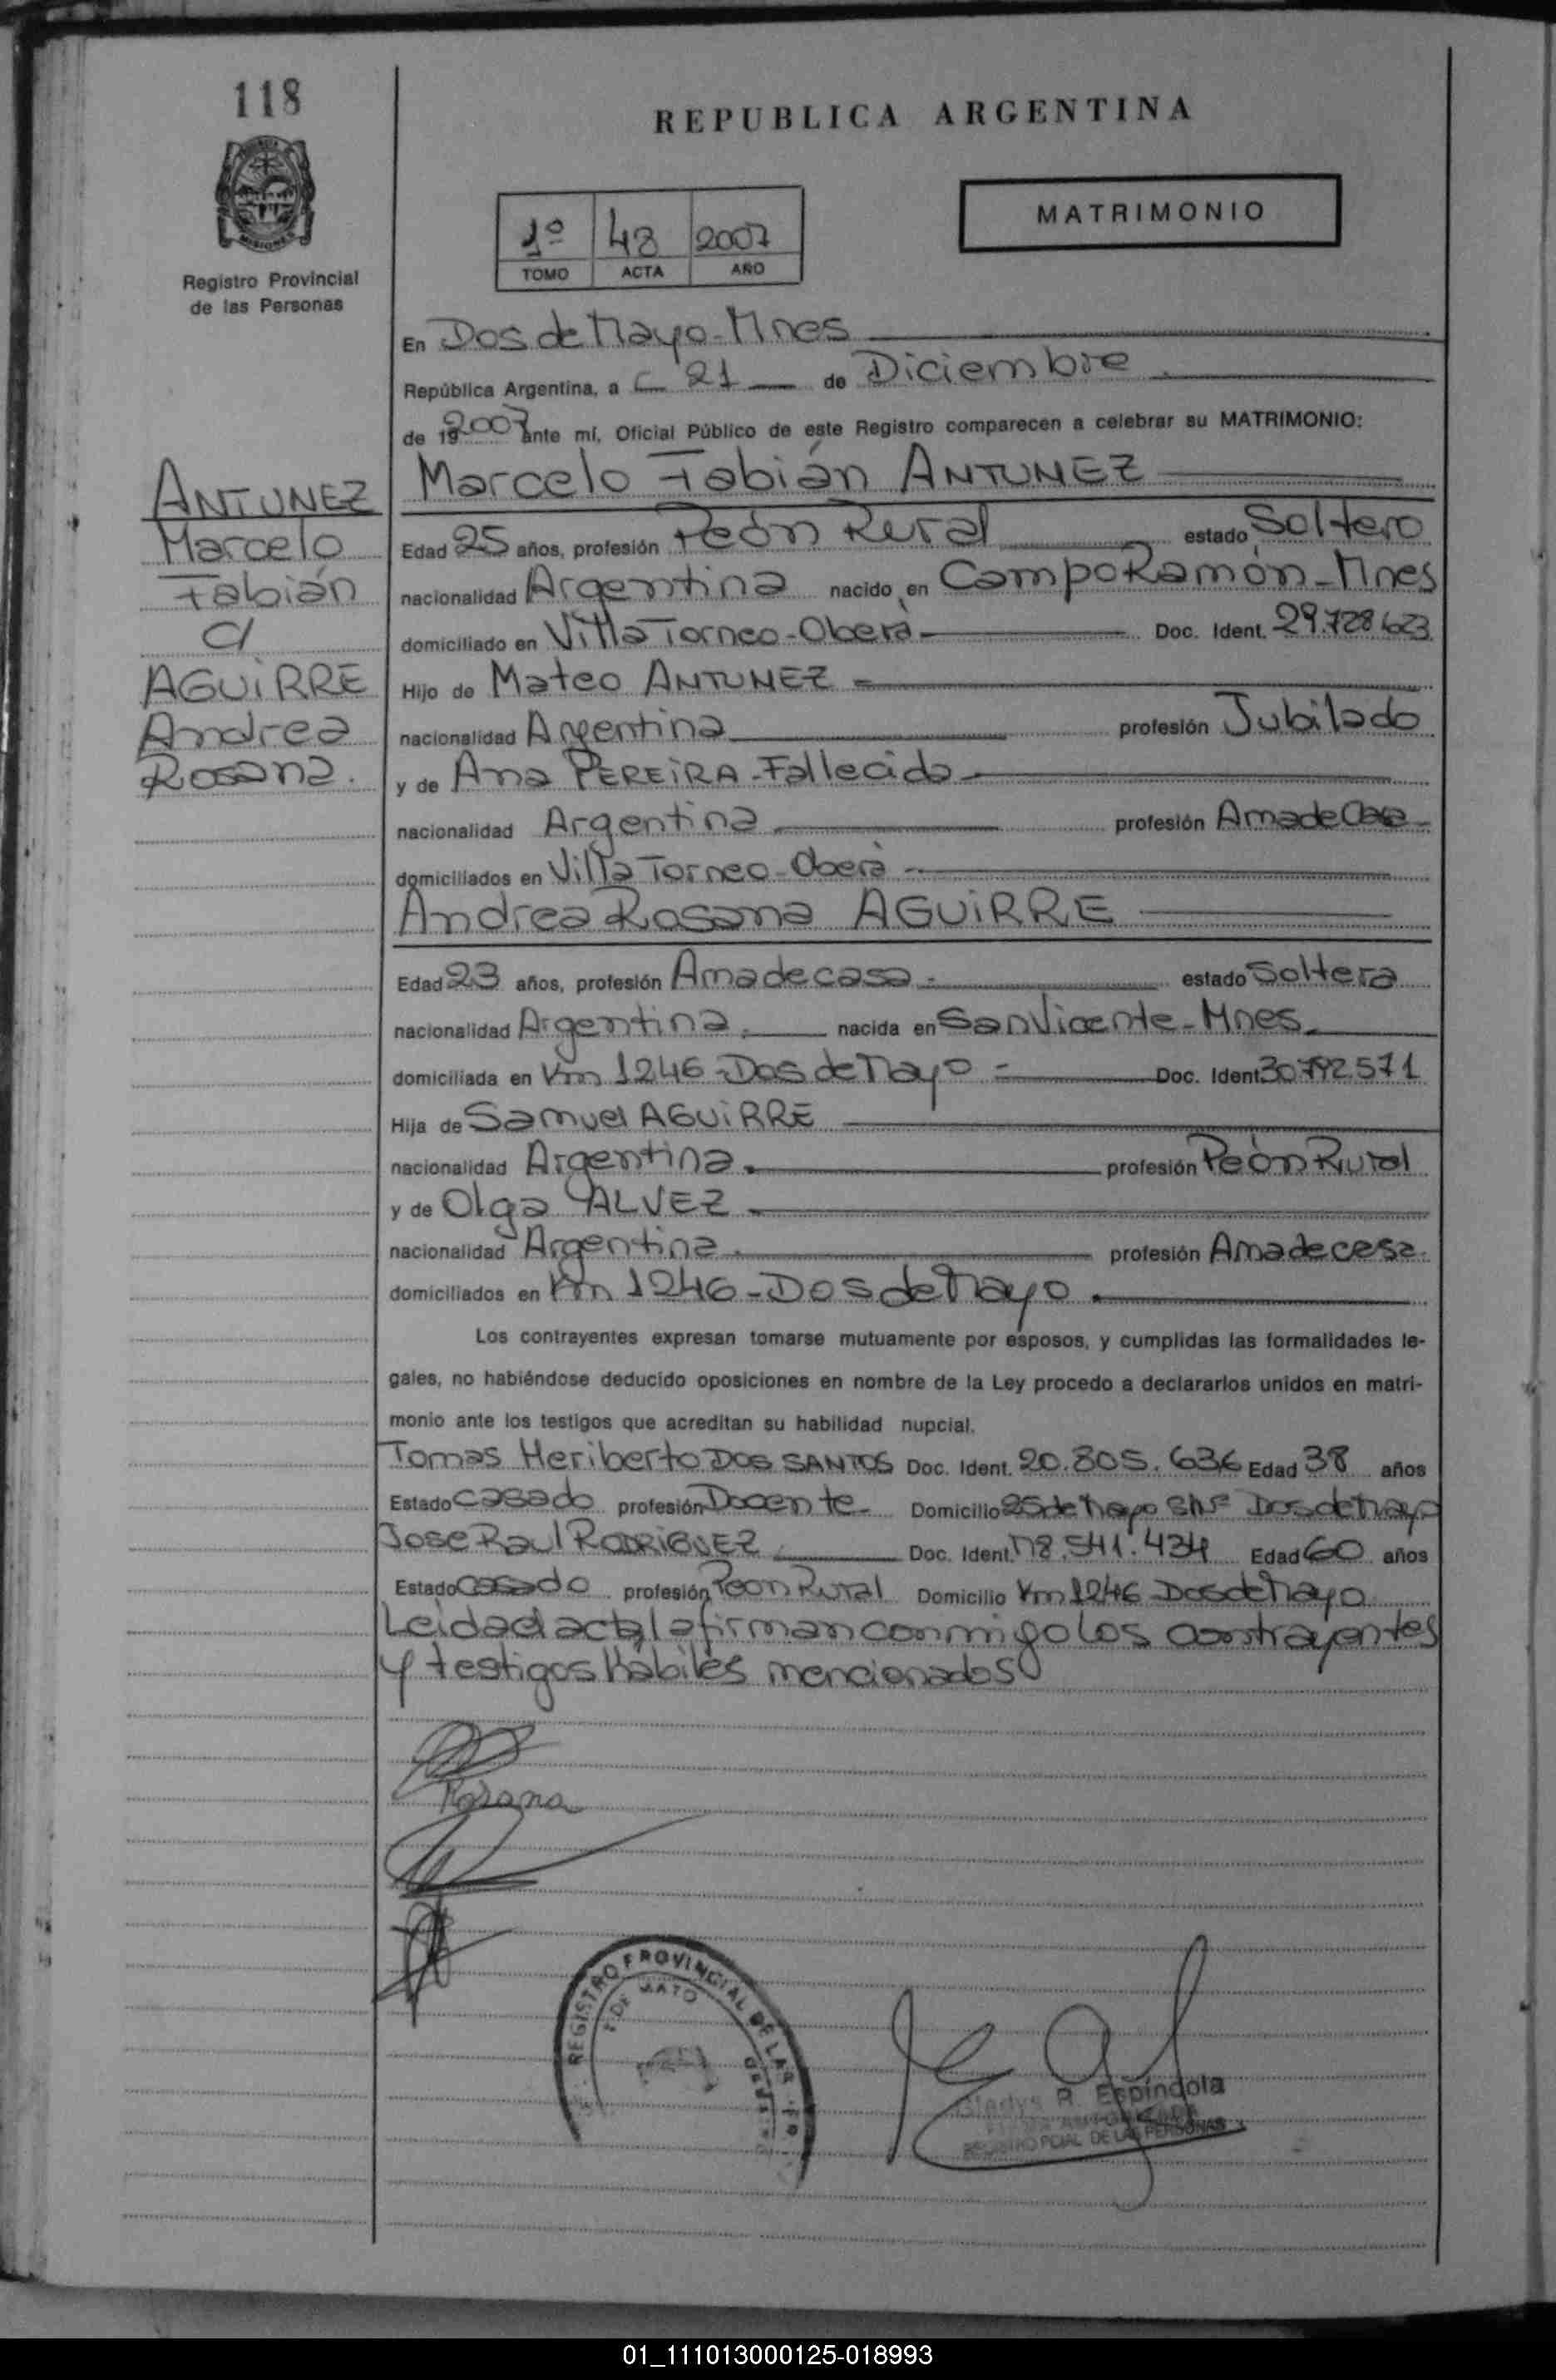 118
REPUBLICA ARGENTINA
MATRIMONIO
1º 48 2007
TOMO ACTA AÑO
Registro Provincial
de las Personas
En Dos de Mayo-Mnes
República Argentina, a 21 de Diciembre
de 19 2007 ante mí, Oficial Público de este Registro comparecen a celebrar su MATRIMONIO:
Marcelo Fabián ANTUNEZ
ANTUNEZ
Marcelo
Fabián
c/
AGUIRRE
Andrea
Rosana.
Edad 25 años, profesión Peón Rural estado Soltero
nacionalidad Argentina nacido en Campo Ramón-Mnes
domiciliado en Villa Torneo-Oberá Doc. Ident. 29.728.623
Hijo de Mateo ANTUNEZ
nacionalidad Argentina profesión Jubilado
y de Ana PEREIRA-Fallecida
nacionalidad Argentina profesión Ama de Casa
domiciliados en Villa Torneo-Oberá
Andrea Rosana AGUIRRE
Edad 23 años, profesión Ama de casa estado Soltera
nacionalidad Argentina nacida en San Vicente-Mnes.
domiciliada en Km 1246-Dos de Mayo Doc. Ident 30.792.571
Hija de Samuel AGUIRRE
nacionalidad Argentina profesión Peón Rural
y de Olga ALVEZ
nacionalidad Argentina profesión Ama de casa
domiciliados en Km 1246-Dos de Mayo
Los contrayentes expresan tomarse mutuamente por esposos, y cumplidas las formalidades le-
gales, no habiéndose deducido oposiciones en nombre de la Ley procedo a declararlos unidos en matri-
monio ante los testigos que acreditan su habilidad nupcial.
Tomas Heriberto DOS SANTOS Doc. Ident. 20.805.636 Edad 38 años
Estado casado profesión Docente Domicilio 25 de Mayo S/Nº Dos de Mayo
Jose Raul RODRIGUEZ Doc. Ident. M8.541.434 Edad 60 años
Estado casado profesión Peon Rural Domicilio Km 1246 Dos de Mayo
Leida el acta la firman conmigo los contrayentes
y testigos habiles mencionados
Rosana
REGISTRO PROVINCIAL DE LAS
Gladys R. Espíndola
REGISTRO PCIAL DE LAS PERSONAS
01_111013000125-018993